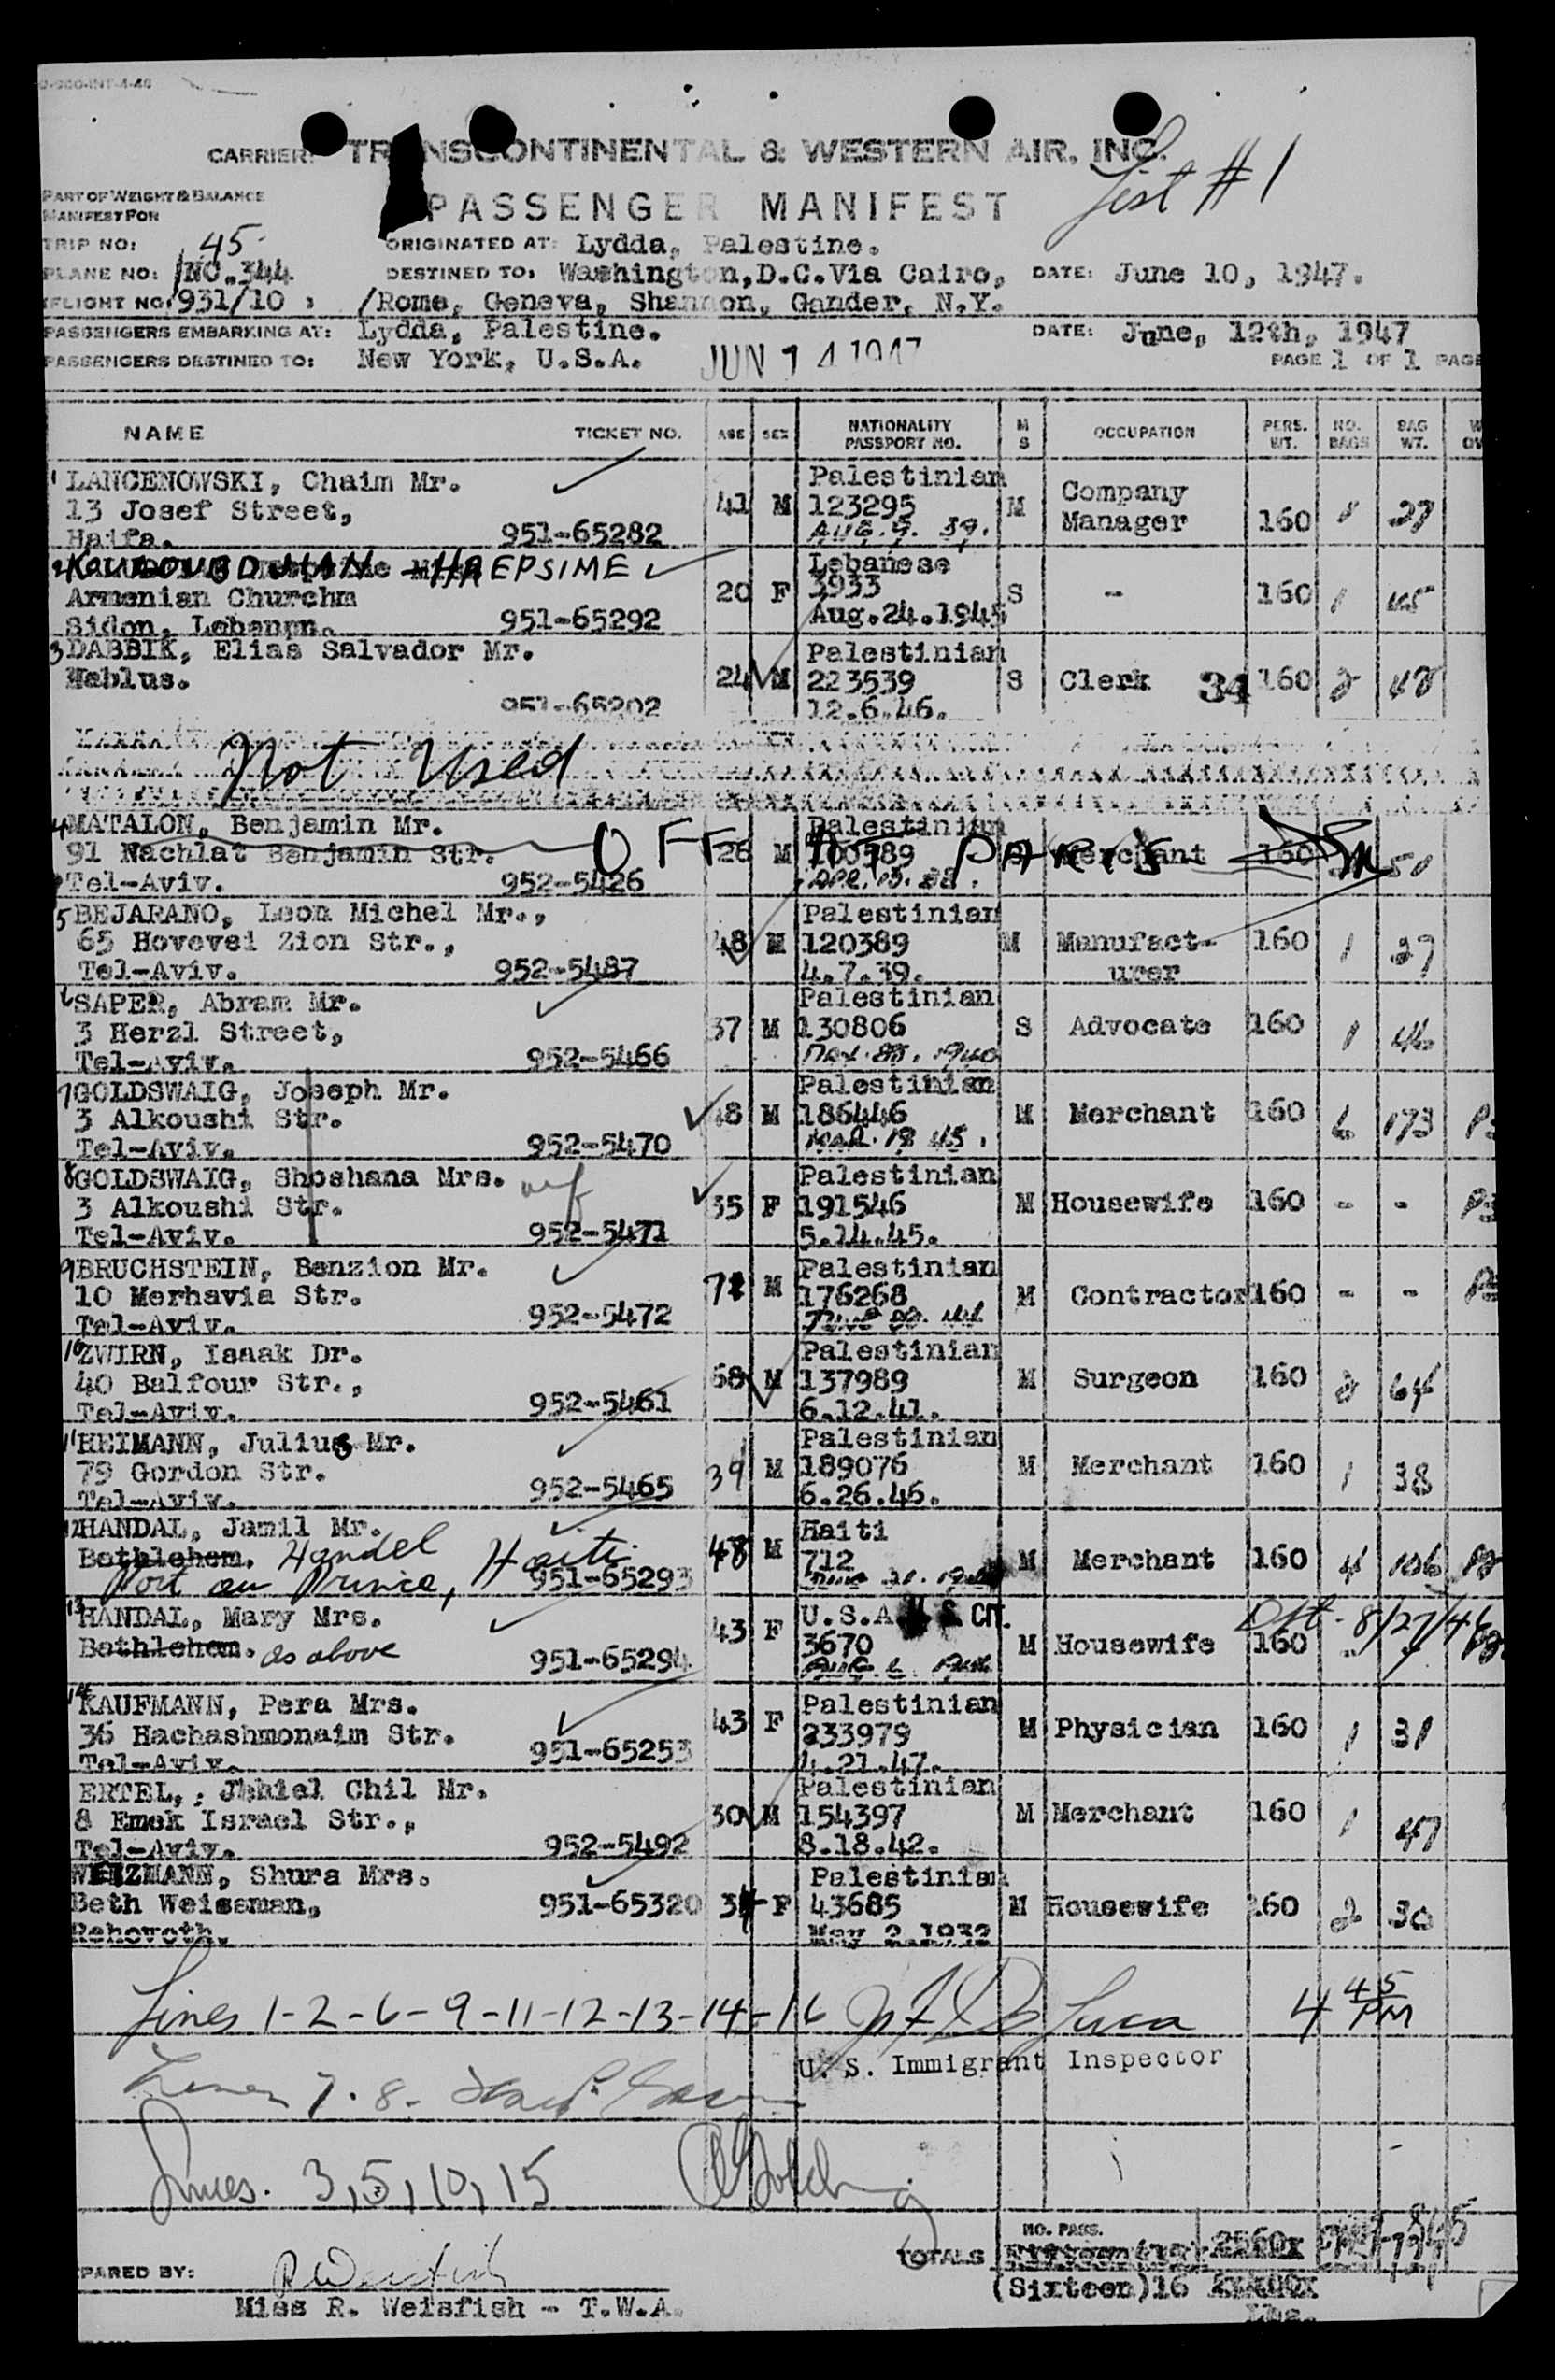 CARRIER: TRANSCONTINENTAL & WESTERN AIR, INC.
List #1
PART OF WEIGHT & BALANCE
MANIFEST FOR
PASSENGER MANIFEST
TRIP NO: 45
ORIGINATED AT: Lydda, Palestine.
PLANE NO: NC.344
DESTINED TO: Washington,D.C.Via Cairo, DATE: June 10, 1947.
FLIGHT NO. 931/10 /Rome, Geneva, Shannon, Gander, N.Y.
PASSENGERS EMBARKING AT: Lydda, Palestine. DATE: June, 12th, 1947
PASSENGERS DESTINED TO: New York, U.S.A. JUN 14 1947 PAGE 1 OF 1 PAGE
NAME TICKET NO. AGE SEX NATIONALITY PASSPORT NO. M S OCCUPATION PERS. WT. NO. BAGS BAG WT.
1 LANCENOWSKI, Chaim Mr. Palestinian
13 Josef Street, 41 M 123295 M Company Manager 160 1 27
Haifa. 951-65282 AUG. 9. 39.
2 KOUYOUMDJIAN HREPSIME Lebanese
Armenian Churchm 20 F 3933 S - 160 1 45
Sidon, Lebanon. 951-65292 Aug.24.1945
3 DABBIK, Elias Salvador Mr. Palestinian
Nablus. 24 M 223539 S Clerk 34 160 2 48
951-65202 12.6.46.
Not Used
4 MATALON, Benjamin Mr. Palestinian
91 Nachlat Benjamin Str. OFF AT PARIS 26 M Merchant 160 50
Tel-Aviv. 952-5426
5 BEJARANO, Leon Michel Mr., Palestinian
65 Hovevei Zion Str., 48 M 120389 M Manufact- 160 1 27
Tel-Aviv. 952-5487 4.7.39. urer
6 SAPER, Abram Mr. Palestinian
3 Herzl Street, 37 M 130806 S Advocate 160 1 46
Tel-Aviv. 952-5466 1940
7 GOLDSWAIG, Joseph Mr. Palestinian
3 Alkoushi Str. 48 M 186446 M Merchant 160 6 173
Tel-Aviv. 952-5470 MAR. 18 45.
8 GOLDSWAIG, Shoshana Mrs. wf Palestinian
3 Alkoushi Str. 35 F 191546 M Housewife 160 - -
Tel-Aviv. 952-5471 5.14.45.
9 BRUCHSTEIN, Benzion Mr. Palestinian
10 Merhavia Str. 71 M 176268 M Contractor 160 - -
Tel-Aviv. 952-5472
10 ZWIRN, Isaak Dr. Palestinian
40 Balfour Str., 68 M 137989 M Surgeon 160 2 64
Tel-Aviv. 952-5461 6.12.41.
11 HEIMANN, Julius Mr. Palestinian
79 Gordon Str. 39 M 189076 M Merchant 160 1 38
Tel-Aviv. 952-5465 6.26.45.
12 HANDAL, Jamil Mr. Haiti
Bethlehem. Handel 48 M 712 M Merchant 160 4 106
Port au Prince, Haiti 951-65293
13 HANDAL, Mary Mrs. U.S.A. U.S CIT. 8/27/46
Bethlehem. as above 43 F 3670 M Housewife 160
951-65294
14 KAUFMANN, Pera Mrs. Palestinian
36 Hachashmonaim Str. 43 F 233979 M Physician 160 1 31
Tel-Aviv. 951-65253 4.21.47.
ERTEL, Jehiel Chil Mr. Palestinian
8 Emek Israel Str., 30 M 154397 M Merchant 160 1 47
Tel-Aviv. 952-5492 8.18.42.
WEIZMANN, Shura Mrs. Palestinian
Beth Weissman, 951-65320 34 F 43685 M Housewife 160 2 30
Rehovoth. May 2.1932
Lines 1-2-6-9-11-12-13-14-16 4 45 PM
U. S. Immigrant Inspector
Lines 7. 8.
Lines. 3,5,10,15
NO. PASS.
TOTALS Fifteen(15) 2560x
PARED BY: R Weisfish (Sixteen)16
Miss R. Weisfish - T.W.A. Lbs.